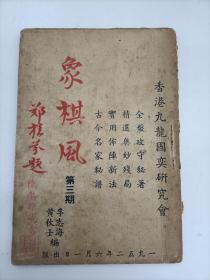 香港九龍國奕研究會
全盤攻守秘著
精選奧妙殘局
實用佈陣新法
古今名家秘譜
象棋風
第三期
李志海
黃秋士
編
一九五二年六月一日出版